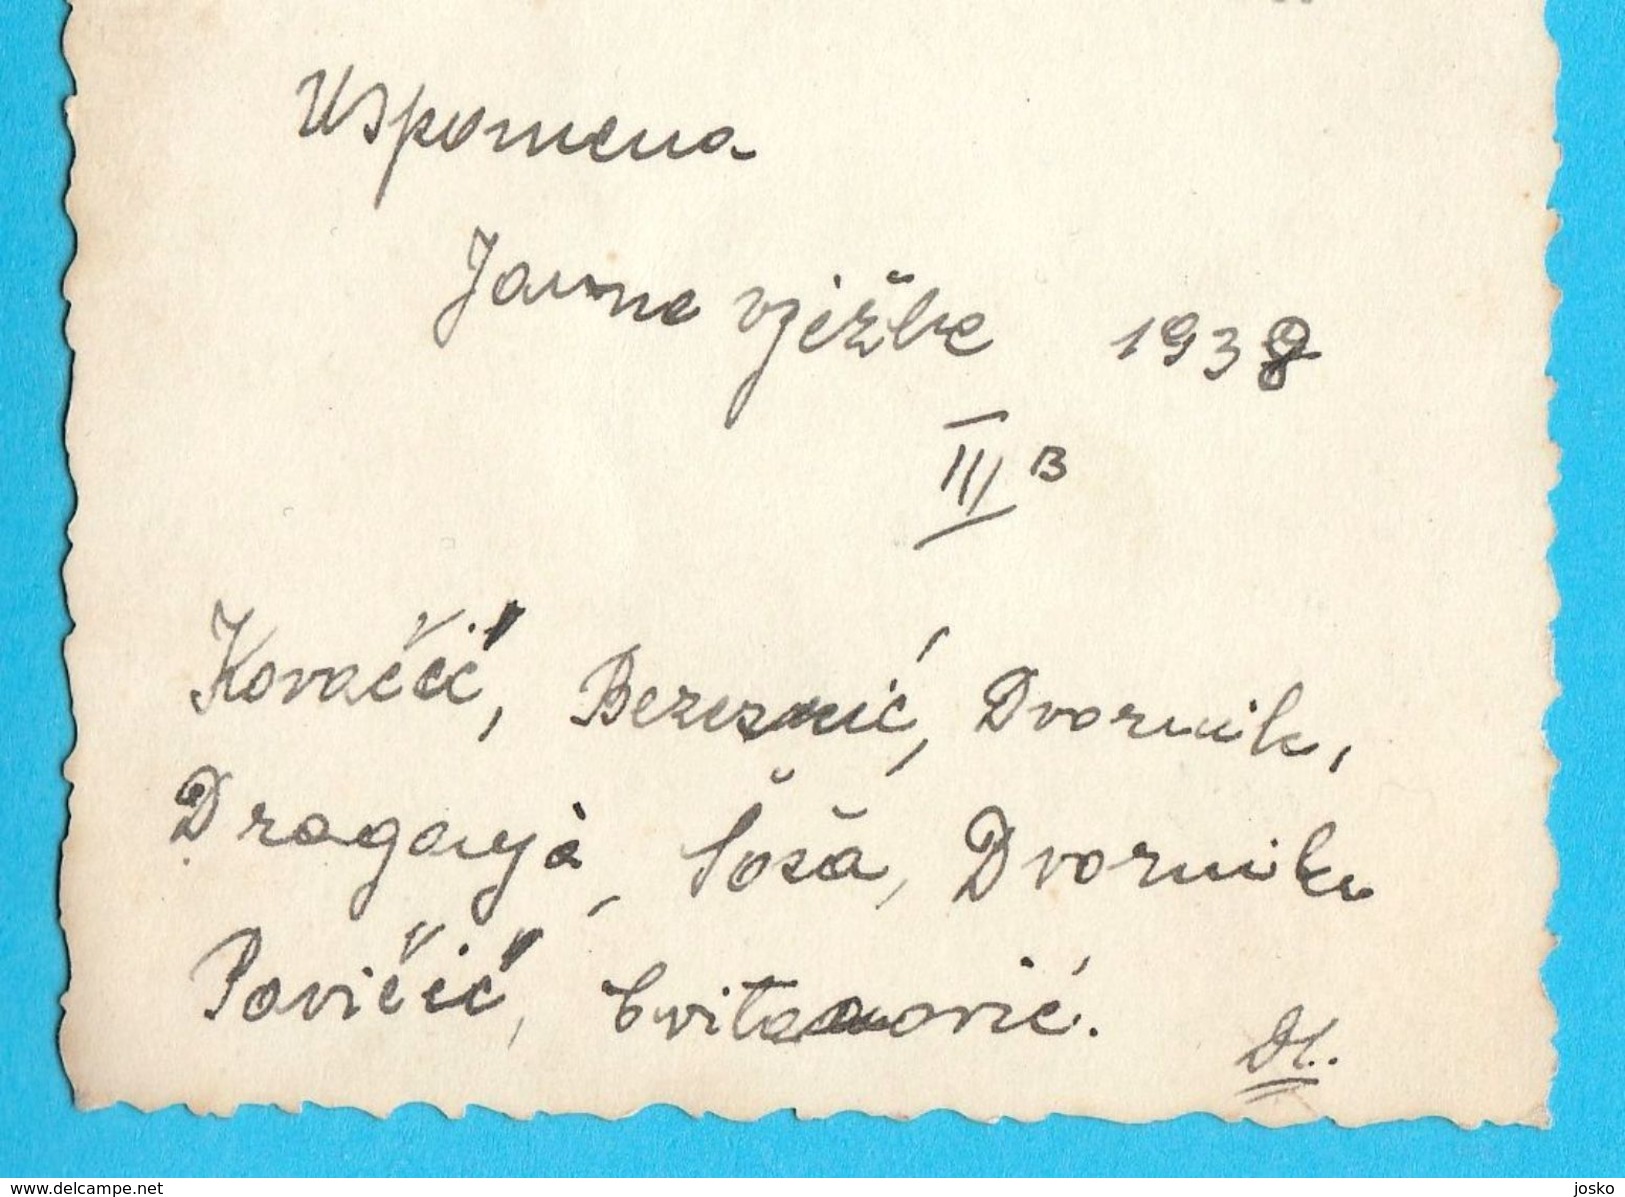 Uspomena
Javne vježbe 1938
III B
Kovačić, Dvornik,
Draganja, Šoša, Dvornik
Pavičić, Cvitanović.
www.delcampe.net
josko